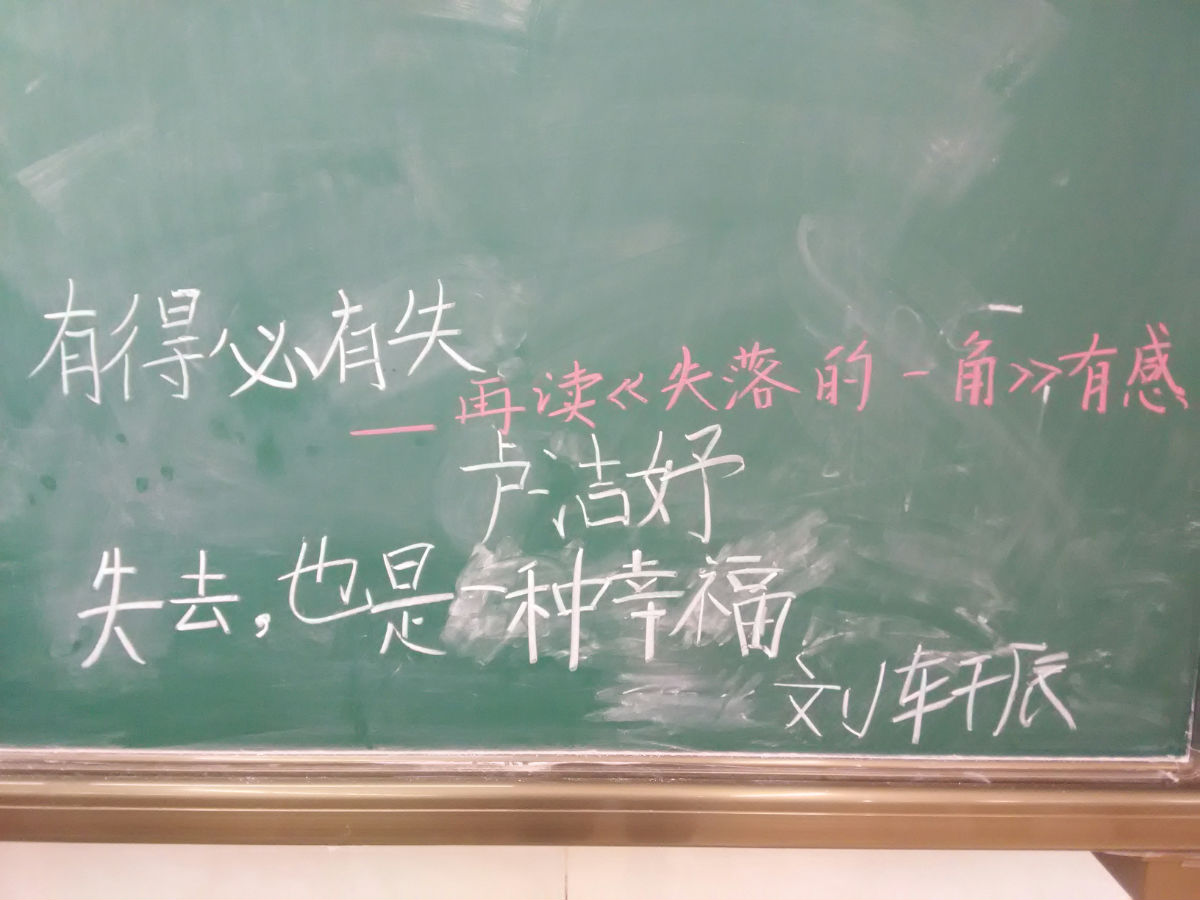 有得必有失
——再读《失落的一角》有感
卢洁妤
失去,也是一种幸福
刘轩辰